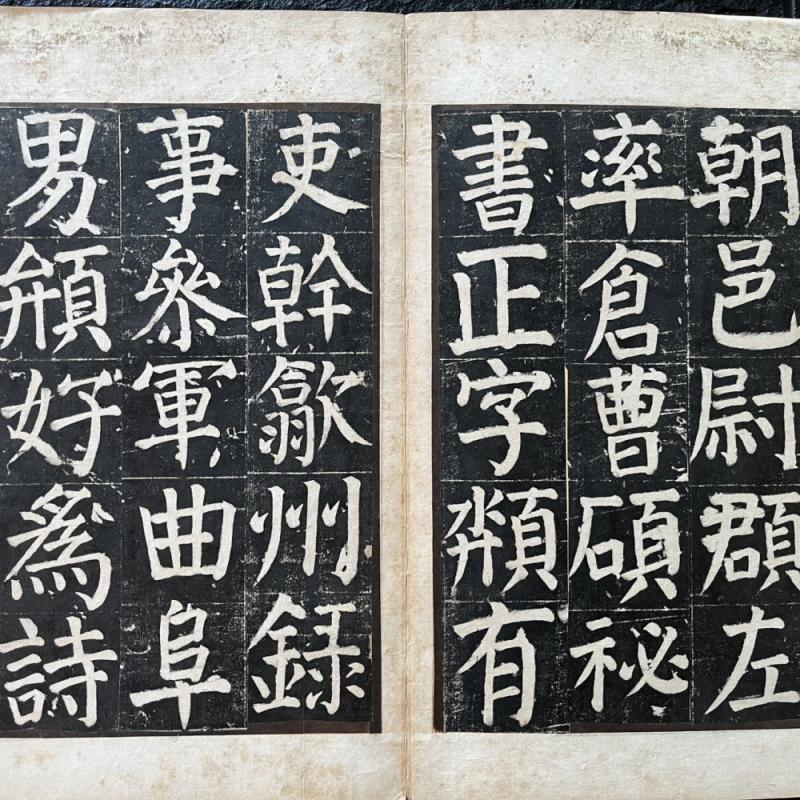 朝邑尉頵左
率倉曹碩祕
書正字有
吏幹歙州錄
事叅軍曲阜
男好爲詩